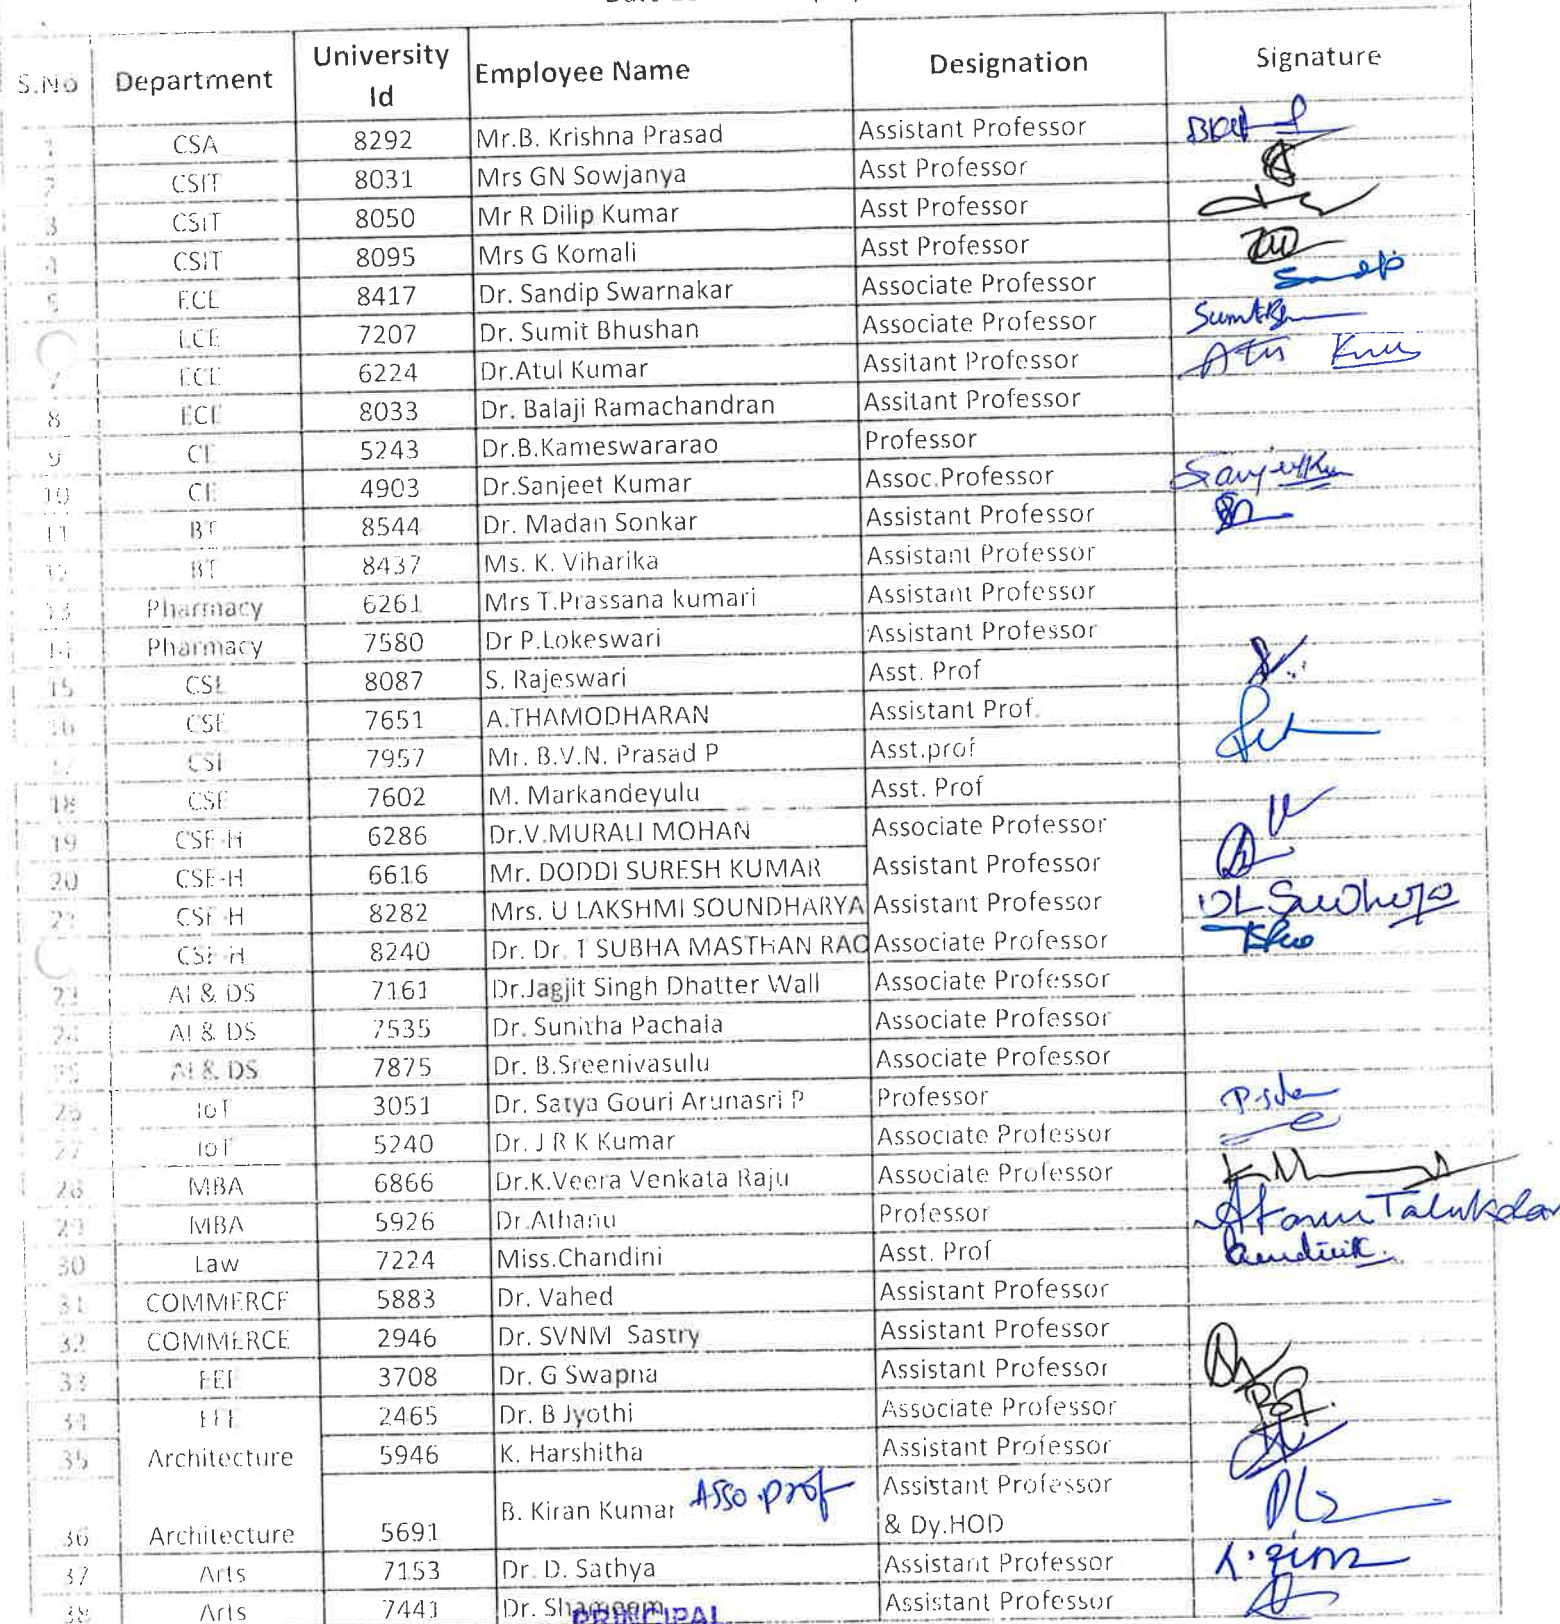 S.No Department University Id Employee Name Designation Signature
1 CSA 8292 Mr.B. Krishna Prasad Assistant Professor
2 CSIT 8031 Mrs GN Sowjanya Asst Professor
3 CSIT 8050 Mr R Dilip Kumar Asst Professor
4 CSIT 8095 Mrs G Komali Asst Professor
5 ECE 8417 Dr. Sandip Swarnakar Associate Professor
ECE 7207 Dr. Sumit Bhushan Associate Professor
7 ECE 6224 Dr.Atul Kumar Assitant Professor
8 ECE 8033 Dr. Balaji Ramachandran Assitant Professor
9 CE 5243 Dr.B.Kameswararao Professor
10 CE 4903 Dr.Sanjeet Kumar Assoc.Professor
11 BT 8544 Dr. Madan Sonkar Assistant Professor
12 BT 8437 Ms. K. Viharika Assistant Professor
13 Pharmacy 6261 Mrs T.Prassana kumari Assistant Professor
14 Pharmacy 7580 Dr P.Lokeswari Assistant Professor
15 CSE 8087 S. Rajeswari Asst. Prof
16 CSE 7651 A.THAMODHARAN Assistant Prof.
17 CSE 7957 Mr. B.V.N. Prasad P Asst.prof
18 CSE 7602 M. Markandeyulu Asst. Prof
19 CSE-H 6286 Dr.V.MURALI MOHAN Associate Professor
20 CSE-H 6616 Mr. DODDI SURESH KUMAR Assistant Professor
21 CSE-H 8282 Mrs. U LAKSHMI SOUNDHARYA Assistant Professor
CSE-H 8240 Dr. Dr. T SUBHA MASTHAN RAO Associate Professor
23 AI & DS 7161 Dr.Jagjit Singh Dhatter Wall Associate Professor
24 AI & DS 7535 Dr. Sunitha Pachala Associate Professor
25 AI & DS 7875 Dr. B.Sreenivasulu Associate Professor
26 IoT 3051 Dr. Satya Gouri Arunasri P Professor
27 IoT 5240 Dr. J R K Kumar Associate Professor
28 MBA 6866 Dr.K.Veera Venkata Raju Associate Professor
29 MBA 5926 Dr.Athanu Professor Atanu Talukdar
30 Law 7224 Miss.Chandini Asst. Prof
31 COMMERCE 5883 Dr. Vahed Assistant Professor
32 COMMERCE 2946 Dr. SVNM Sastry Assistant Professor
33 EEE 3708 Dr. G Swapna Assistant Professor
34 EEE 2465 Dr. B Jyothi Associate Professor
35 Architecture 5946 K. Harshitha Assistant Professor
36 Architecture 5691 B. Kiran Kumar Asso.prof Assistant Professor & Dy.HOD
37 Arts 7153 Dr. D. Sathya Assistant Professor
38 Arts 7441 Dr. Shameem Assistant Professor
PRINCIPAL